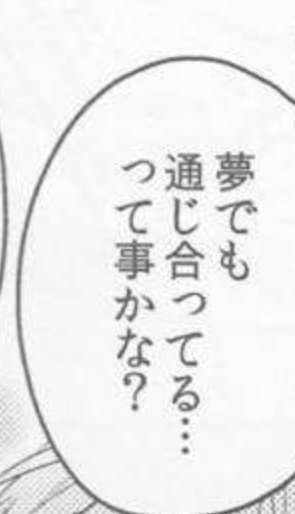 夢でも
通じ合ってる…
って事かな?